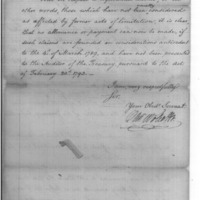 other words, those which have not been
as affected by former acts of limitations, it is clear
that no allowance or payment can now be made, if
such claims are founded on considerations antecedent
to the 4th of March 1789, and have not been presented
to the Auditor of the Treasury pursuant to the Act
of February 1793.
I am, very respectfully
Sir,
Your Obed Servant